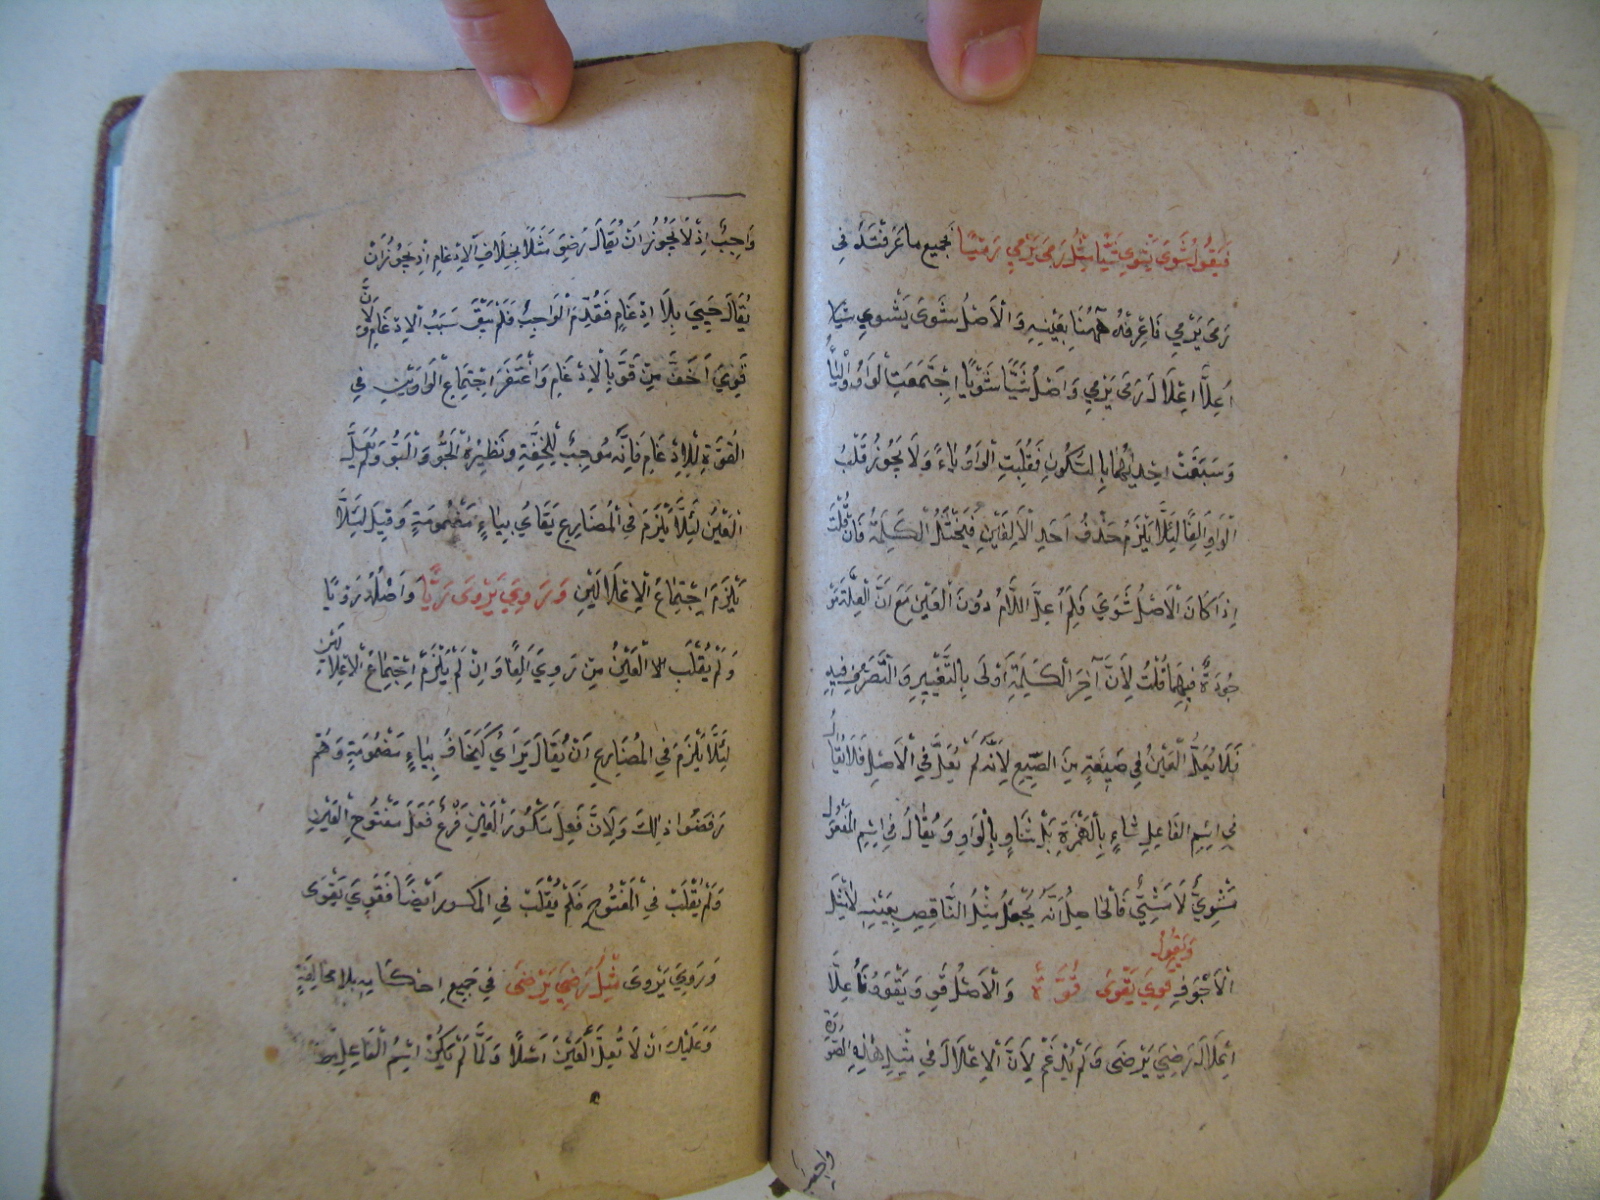 فَيَقُولُ شَوَى يَشْوِي شَيًّا مِثْلُ رَمَى يَرْمِي رَمْيًا فَجَمِيعُ مَا عَرَفْتَهُ فِي
رَمَى يَرْمِي فَاعْرِفْهُ هٰهُنَا بِعَيْنِهِ وَالْأَصْلُ شَوَى يَشْوِي شَيًّا
أُعِلَّا اِعْلَالَ رَمَى يَرْمِي وَاَصْلُ شَيًّا شَوْيًا اِجْتَمَعَتِ الْوَاوُ وَالْيَاءُ
وَسَبَقَتْ اِحْدٰيهُمَا بِالسُّكُونِ فَقُلِبَتِ الْوَاوُ يَاءً وَلَا يَجُوزُ قَلْبُ
الْوَاوِ اَلِفًا لِئَلَّا يَلْزَمَ حَذْفُ اَحَدِ الْاَلِفَيْنِ فَيَخْتَلُّ الْكَلِمَةُ فَاِنْ قُلْتَ
اِذَا كَانَ الْاَصْلُ شَوَيَ فَلِمَ اُعِلَّ اللَّامُ دُونَ الْعَيْنِ مَعَ اَنَّ الْعِلَّةَ مَوْ
جُودَةٌ فِيهِمَا قُلْتُ لِاَنَّ آخِرَ الْكَلِمَةِ اَوْلَى بِالتَّغْيِيرِ وَالتَّصَرُّفِ فِيهِ
فَلَا يُعَلُّ الْعَيْنُ فِي صِيغَةٍ مِنَ الصِّيَغِ لِاَنَّهُ لَمْ يُعَلَّ فِي الْاَصْلِ فَلَا يُقَالُ
فِي اِسْمِ الْفَاعِلِ شَاءٍ بِالْهَمْزَةِ بَلْ شَاوٍ بِالْوَاوِ وَيُقَالُ فِي اِسْمِ الْمَفْعُولِ
مَشْوِيٌّ لَا مَشِيٌّ فَالْحَاصِلُ اَنَّهُ يُجْعَلُ مِثْلَ النَّاقِصِ بِعَيْنِهِ لَا مِثْلَ
الْاَجْوَفِ وَيَقُولُ قَوِيَ يَقْوَى قُوَّةً وَالْاَصْلُ قَوِوَ وَيَقْوَوُ فَاُعِلَّا
اِعْلَالَ رَضِيَ يَرْضَى وَلَمْ يُدْغَمْ لِاَنَّ الْاِعْلَالَ فِي مِثْلِ هٰذِهِ الصُّورَةِ
وَاجِبٌ
وَاجِبٌ اِذْ لَا يَجُوزُ اَنْ يُقَالَ رَضِوَ مَثَلًا بِخِلَافِ الْاِدْغَامِ اِذْ يَجُوزُ اَنْ
يُقَالَ حَيِيَ بِلَا اِدْغَامٍ فَقُدِّمَ الْوَاجِبُ فَلَمْ يَبْقَ سَبَبُ الْاِدْغَامِ وَلِاَنَّ
قَوِيَ اَخَفُّ مِنْ قَوَّ بِالْاِدْغَامِ وَاغْتُفِرَ اِجْتِمَاعُ الْوَاوَيْنِ فِي
الْقُوَّةِ لِلْاِدْغَامِ فَاِنَّهُ مُوجِبٌ لِلْخِفَّةِ وَنَظِيرُهُ الْجَوُّ وَالْبَوُّ وَلَمْ يُعَلَّ
الْعَيْنُ لِئَلَّا يَلْزَمَ فِي الْمُضَارِعِ يَقَايُ بِيَاءٍ مَضْمُومَةٍ وَقِيلَ لِئَلَّا
يَلْزَمَ اِجْتِمَاعُ الْاِعْلَالَيْنِ وَرَوِيَ يَرْوَى رَيًّا وَاَصْلُهُ رَوْيًا
وَلَمْ يُقْلَبْ الْعَيْنُ مِنْ رَوِيَ اَلِفًا وَاِنْ لَمْ يَلْزَمْ اِجْتِمَاعُ الْاِعْلَالَيْنِ
لِئَلَّا يَلْزَمَ فِي الْمُضَارِعِ اَنْ يُقَالَ يَرَايُ كَيَخَافُ بِيَاءٍ مَضْمُومَةٍ وَهُمْ
رَفَضُوا ذٰلِكَ وَلِاَنَّ فَعِلَ مَكْسُورَ الْعَيْنِ فَرْعُ فَعَلَ مَفْتُوحِ الْعَيْنِ
وَلَمْ يُقْلَبْ فِي الْمَفْتُوحِ فَلَمْ يُقْلَبْ فِي الْمَكْسُورِ اَيْضًا فَقَوِيَ يَقْوَى
وَرَوِيَ يَرْوَى مِثْلُ رَضِيَ يَرْضَى فِي جَمِيعِ اَحْكَامِهِ بِلَا مُخَالَفَةٍ
وَعَلَيْكَ اَنْ لَا تُعِلَّ الْعَيْنَ اَصْلًا وَلَمَّا لَمْ يَكُنْ اِسْمُ الْفَاعِلِ